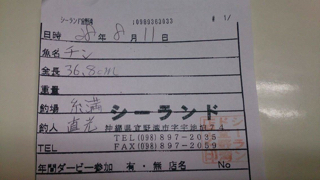 日時 28年8月11日
魚名 チン
全長 36.8cm
重量
釣場 糸満
シーランド
釣人 直光
沖縄県宜野湾市字宇地泊
TEL(098)897-2035
TEL
FAX(098)897-2059
年間ダービー参加 有・無 店名 No